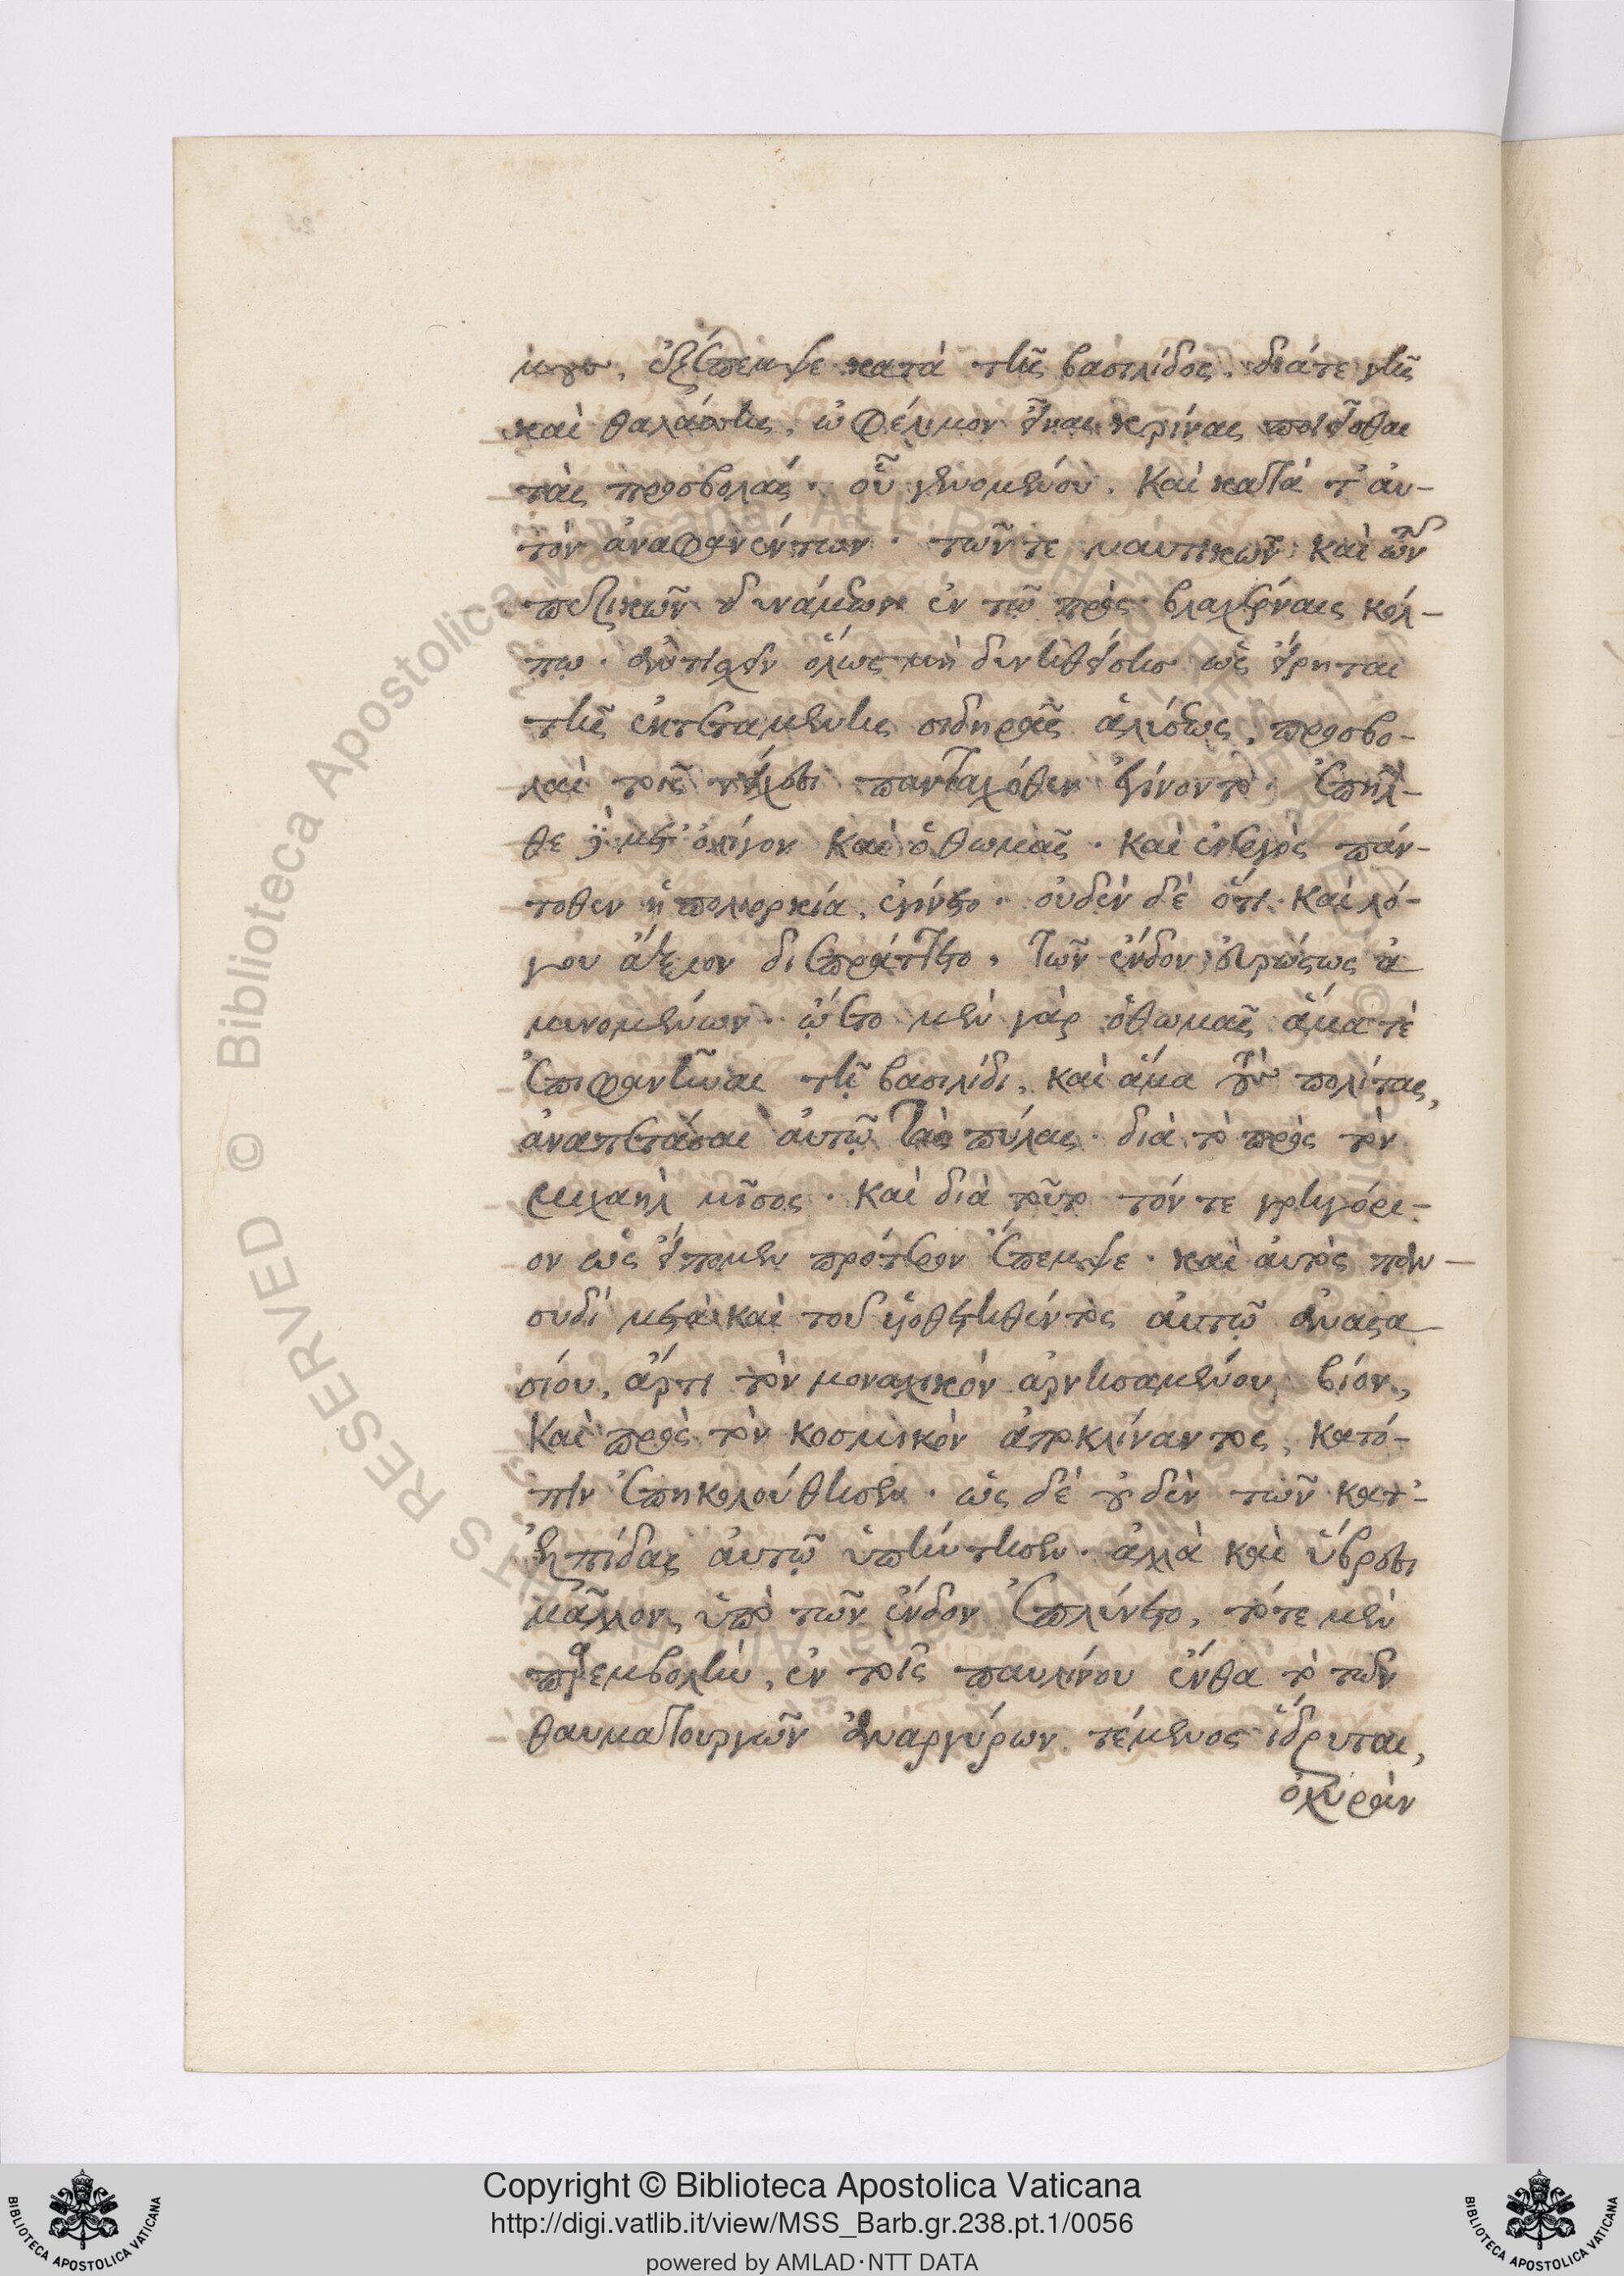 μου, ἐξέπεμψε κατὰ τῆς βασιλίδος. διάτε γῆς
καὶ θαλάσσης, ὠφέλιμον εἶναι κρίνας ποιεῖσθαι
τὰς προσβολάς. οὗ γενομένου. καὶ κατὰ τ' αυ-
τὸν ἀναφανέντων. τῶν τε ναυτικῶν καὶ τῶν
πεζικῶν δυνάμεων ἐν τῷ πρὸς βλαχέρναις κόλ-
πῳ. ἀντισχεῖν ὅλως μὴ δυνηθείσης ὡς εἴρηται
τῆς ἐκτεταμένης σιδηρᾶς ἁλύσεως, προσβο-
λαὶ τοῖς τείχεσι πανταχόθεν ἐγίνοντο. ἐπῆλ-
θε γὰρ μετ' ὀλίγον καὶ ὁ θωμᾶς. καὶ ἐνεργὸς πάν-
τοθεν ἡ πολιορκία, ἐγίνετο. οὐδὲν δὲ ὅτι καὶ λό-
γου ἄξιον διεπράττετο, τῶν ἔνδον εὐρώστως ἀ
μυνομένων. ᾤετο μὲν γὰρ ὁ θωμᾶς ἅμα τὲ
ἐπιφανῆναι τῇ βασιλίδι, καὶ ἅμα τοὺς πολίτας,
ἀναπετάσαι αὐτῷ τὰς πύλας. διὰ τὸ πρὸς τὸν
μιχαὴλ μῖσος. καὶ διὰ τοῦτο τόν τε γρηγόρι-
ον ὡς εἴπομεν πρότερον ἔπεμψε. καὶ αὐτὸς παν-
συδὶ μετὰ καὶ τοῦ υἱοθετηθέντος αὐτῷ ἀναστα
σίου, ἄρτι τὸν μοναχικὸν ἀρνησαμένου βίον,
καὶ πρὸς τὸν κοσμικὸν ἀποκλίναντος, κατό-
πιν ἐπηκολούθησεν. ὡς δὲ οὐδὲν τῶν κατ'-
ἐλπίδας αὐτῷ ὑπήντησεν. ἀλλὰ καὶ ὕβρεσι
μᾶλλον, ὑπὸ τῶν ἔνδον ἐπλύνετο, τότε μὲν
παρεμβολὴν, ἐν τοῖς παυλίνου ἔνθα τὸ τῶν
θαυματουργῶν ἀναργύρων τέμενος ἵδρυται,
ὀχυρὰν
Copyright © Biblioteca Apostolica Vaticana
http://digi.vatlib.it/view/MSS_Barb.gr.238.pt.1/0056
powered by AMLAD·NTT DATA